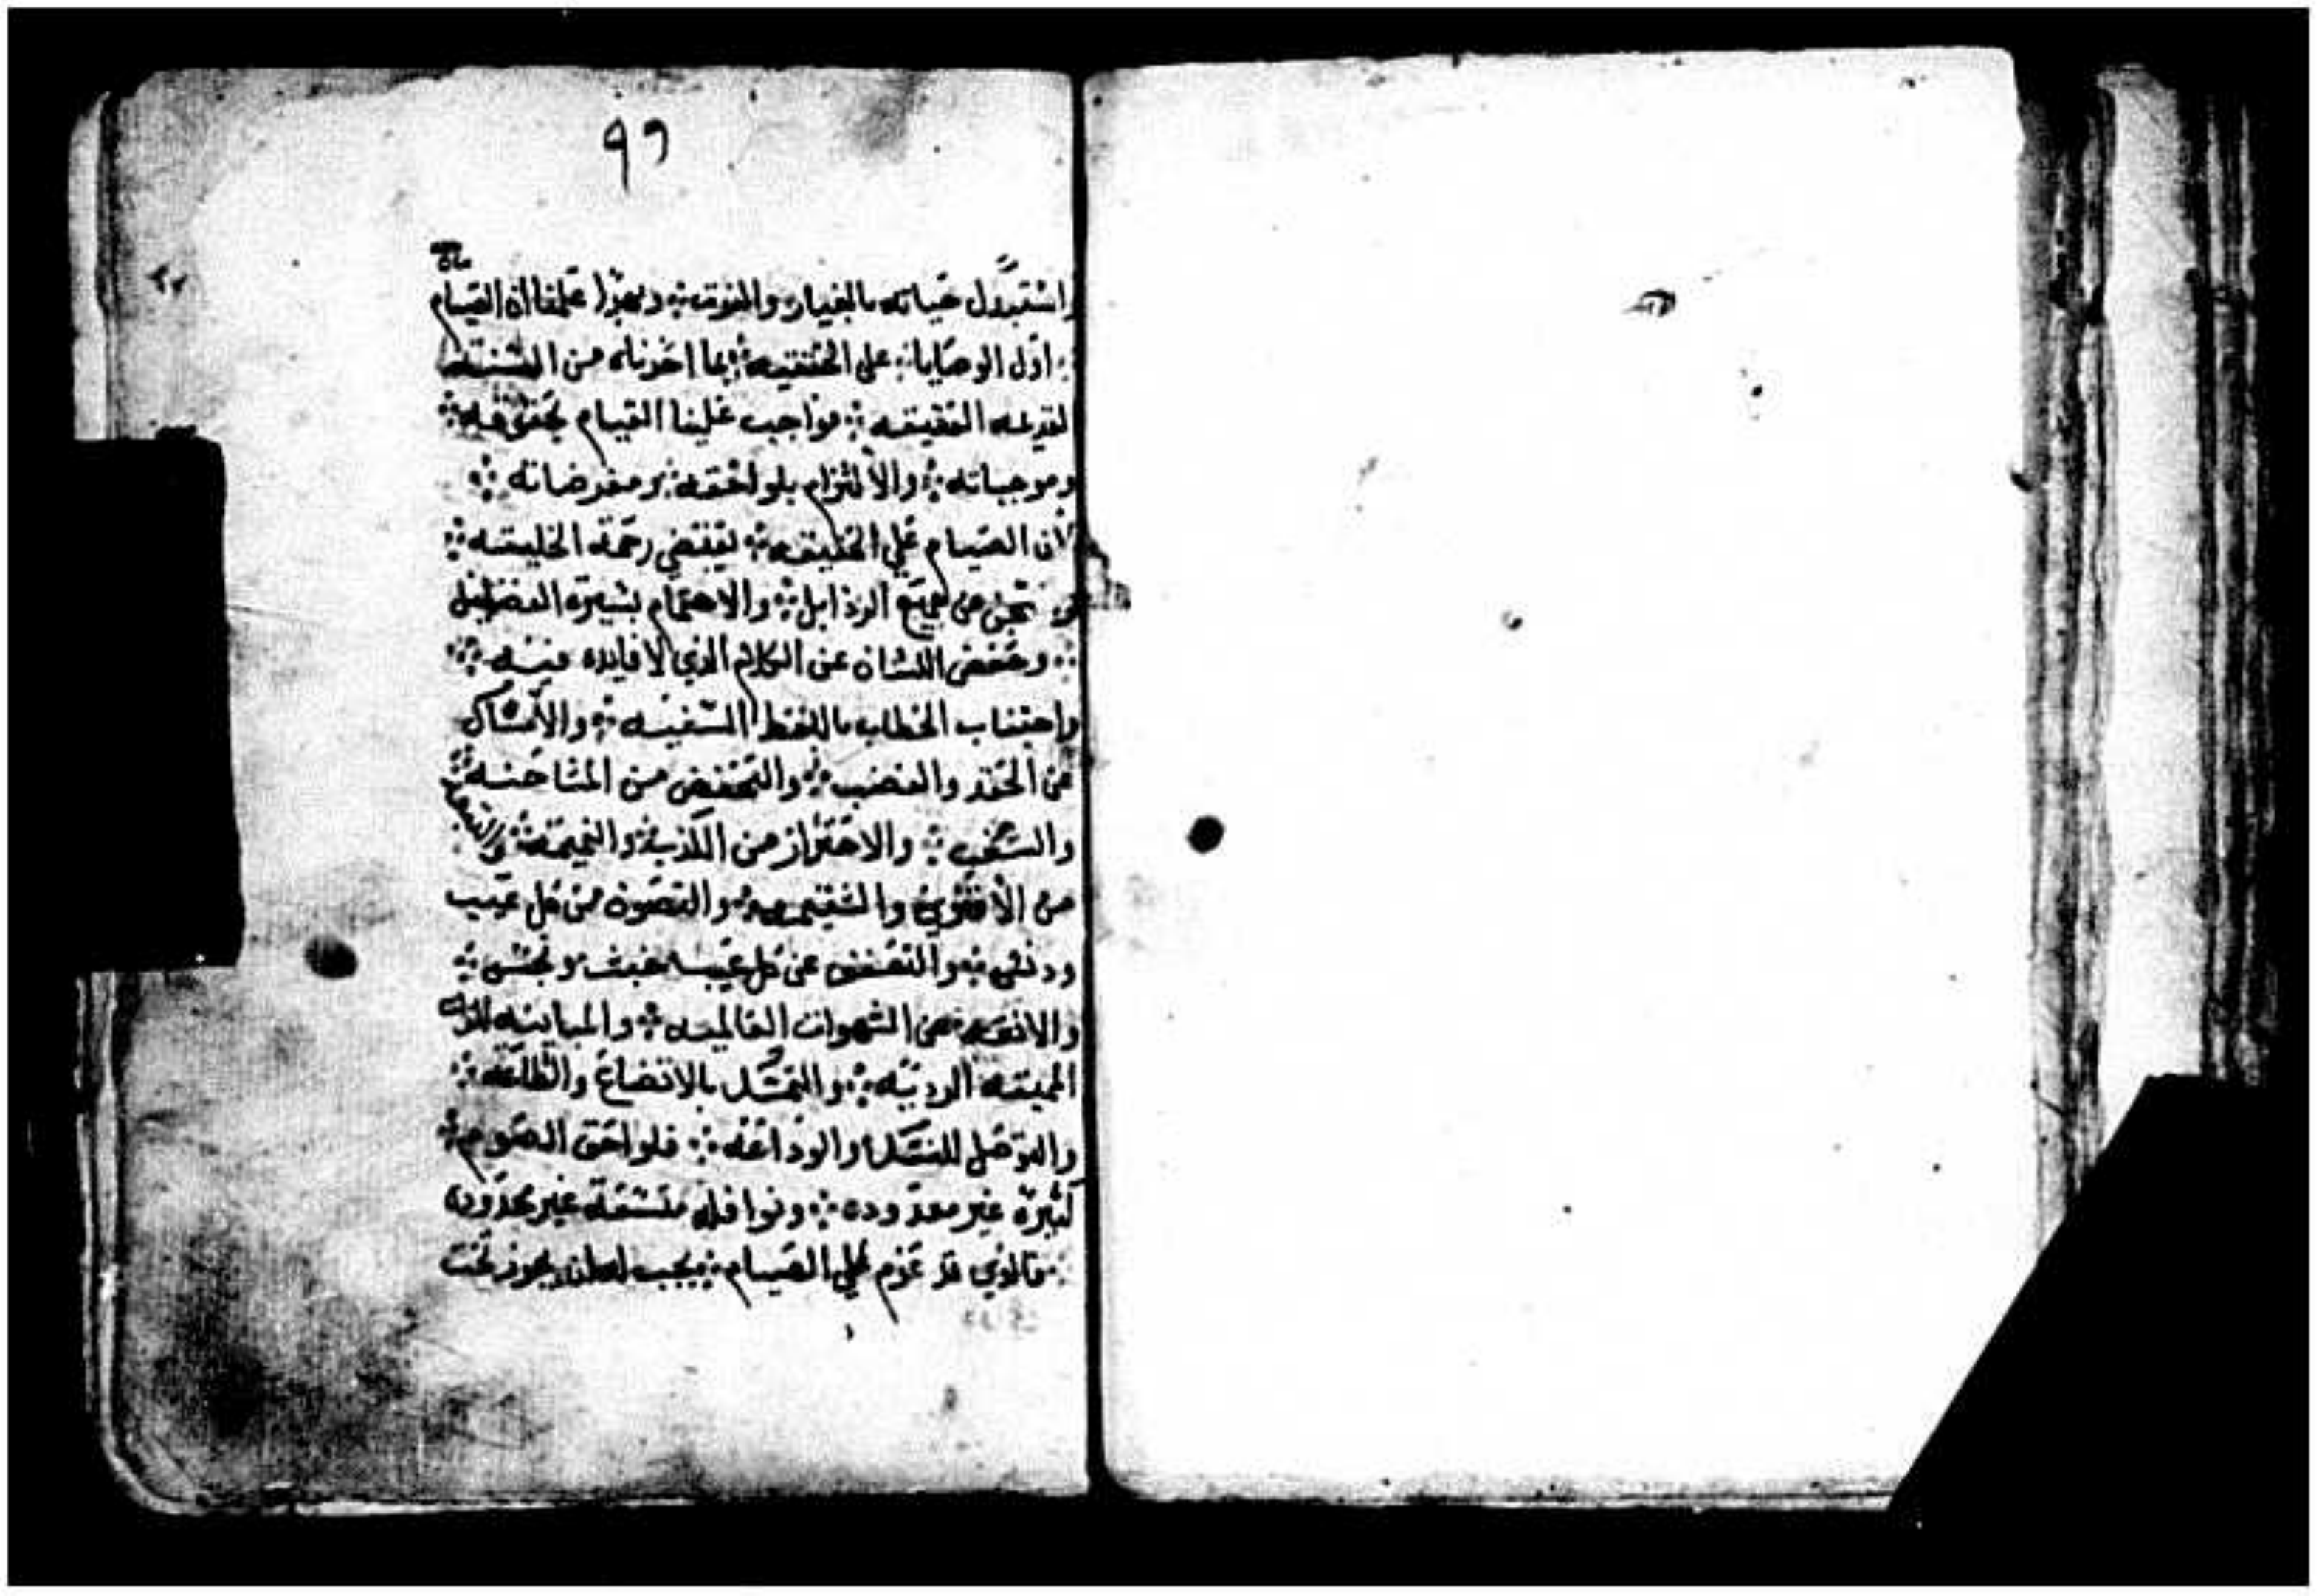 ٩٦
واستبدل حياته بالغيار والفوت ⁘ وبهذا علمنا ان الصيام
⁘ اول الوصايا ⁘ علي الحقيقه ⁘ بما اخذناه من السنه
القديمه العتيقه ⁘ فواجب علينا القيام بحقوقه ⁘
وموجباته ⁘ والالتزام بلواحقه ⁘ ومفرضاته ⁘
لان الصيام علي الحقيقه ⁘ يقتضي رحمة الخليقه ⁘
عن جميع الرذايل ⁘ والاهتمام بسيرة الفضايل
⁘ وحفض اللسان عن الكلام الذي لا فايده فيه ⁘
واجتناب الخطاب باللفظ السفيه ⁘ والامساك
عن الحقد والغضب ⁘ والتحفض من المشاحنه ⁘
والسخب ⁘ والاحتراز من الكذب والنميمه ⁘ والتبعد
من الافترى والشتيمه ⁘ والتصون من كل عيب
ودنس ⁘ والتعفف عن كل خبث ونجس ⁘
والانفه من الشهوات العالميه ⁘ والمباينه للذات
المميته الرديه ⁘ والتمسك بالاتضاع والطاعه ⁘
والتوصل للنسك والوداعه ⁘ فلواحق الصوم ⁘
كثيرة غير معدوده ⁘ ونوافله متسعة غير محدوده
⁘ فالذي قد عزم علي الصيام ⁘ يجب له ان يجوز تحت